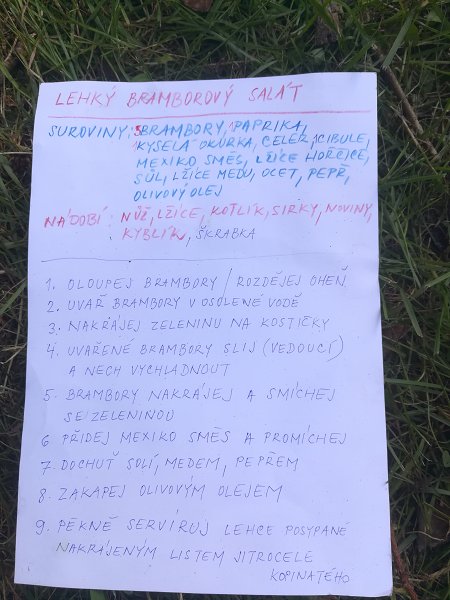 LEHKÝ BRAMBOROVÝ SALÁT
SUROVINY: 5BRAMBORY, 1PAPRIKA,
1KYSELÁ OKURKA, CELER, 1CIBULE,
MEXIKO SMĚS, LŽÍCE HOŘČICE,
SŮL, LŽÍCE MEDU, OCET, PEPŘ,
OLIVOVÝ OLEJ
NÁDOBÍ: NŮŽ, LŽÍCE, KOTLÍK, SIRKY, NOVINY,
KYBLÍK, ŠKRABKA
1. OLOUPEJ BRAMBORY / ROZDĚJEJ OHEŇ
2. UVAŘ BRAMBORY V OSOLENÉ VODĚ
3. NAKRÁJEJ ZELENINU NA KOSTIČKY
4. UVAŘENÉ BRAMBORY SLIJ (VEDOUCÍ)
A NECH VYCHLADNOUT
5. BRAMBORY NAKRÁJEJ A SMÍCHEJ
SE ZELENINOU
6. PŘIDEJ MEXIKO SMĚS A PROMÍCHEJ
7. DOCHUŤ SOLÍ, MEDEM, PEPŘEM
8. ZAKAPEJ OLIVOVÝM OLEJEM
9. PĚKNĚ SERVÍRUJ LEHCE POSYPANÉ
NAKRÁJENÝM LISTEM JITROCELE
KOPINATÉHO